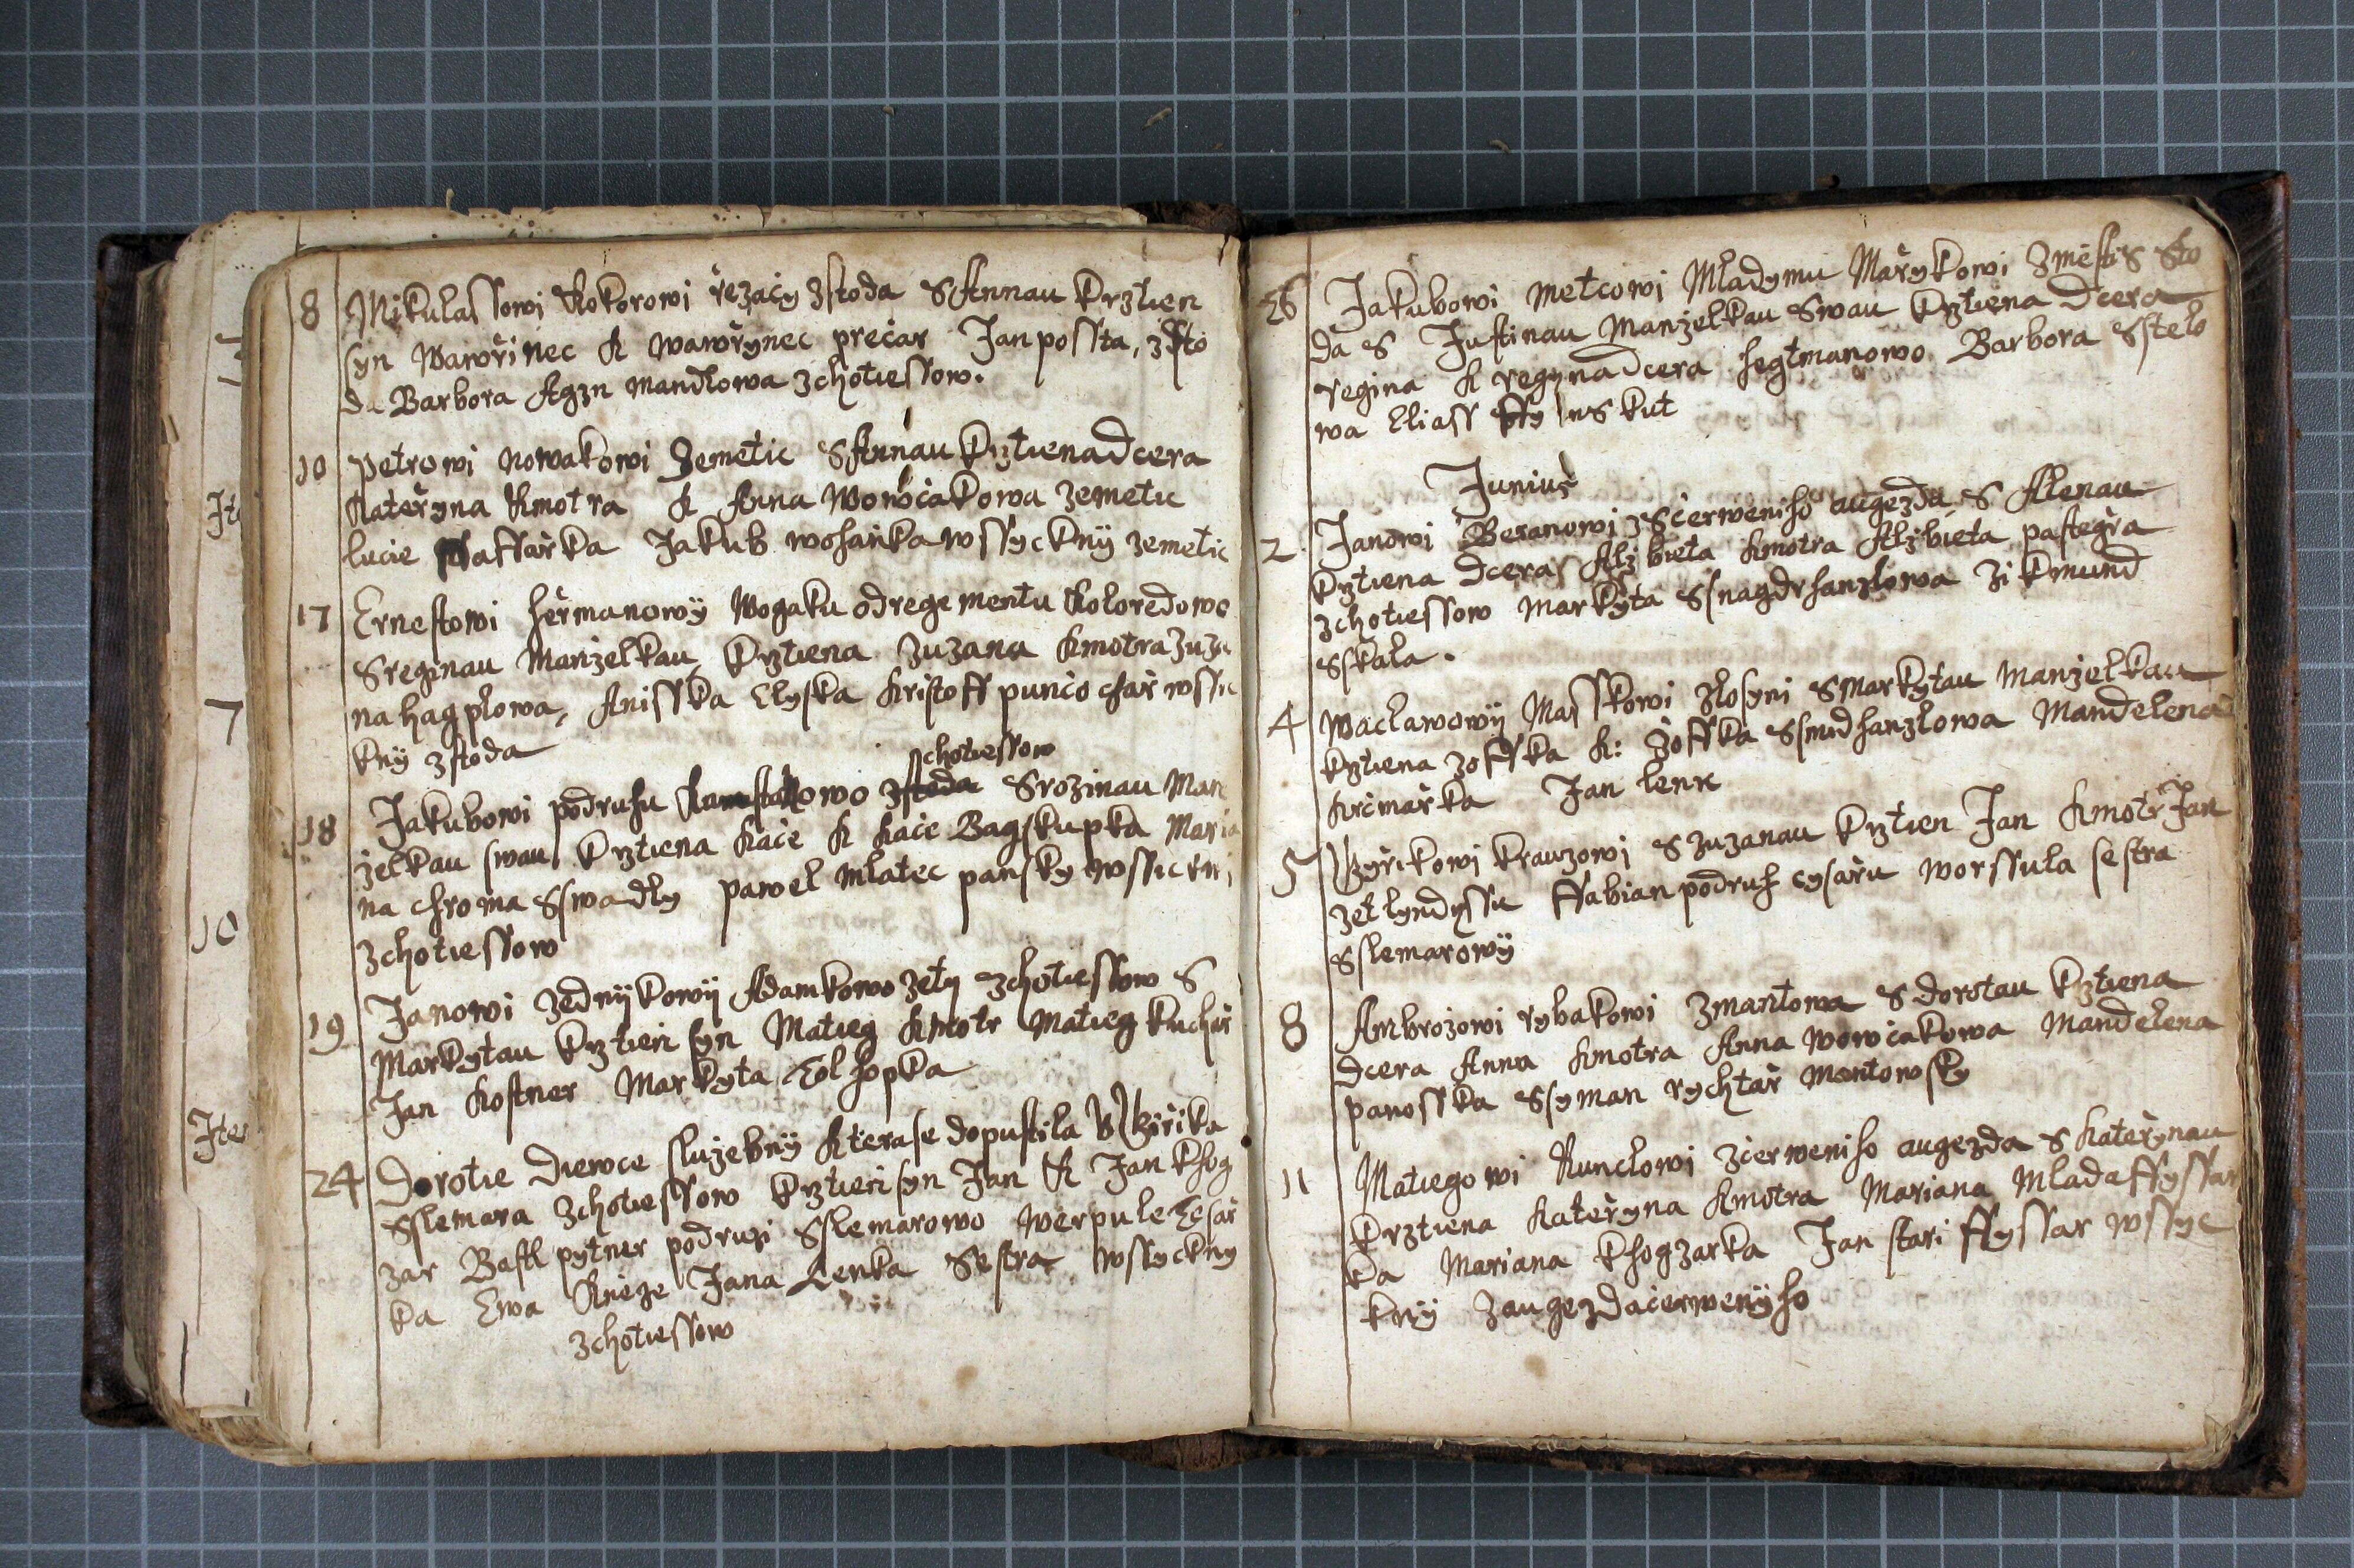 8 Mikulassowi Kokorowi řezačy zstoda S Annau Krztien
syn Wawřinec K wawřynec prečar Jan possta, zSto
da Barbora Agzn mandlowa zchotiessow.
10 petrowi nowakowi Zemetic S Annau Krztiena dcera
Kateřyna Kmotra K Anna Worwičakowa zemetic
lucie Saffařka Jakub wohařka wssyckny zemetic
17 Ernestowi heřmanowÿ Wogaku odregementu Koloredowo
S reginau Manželkau Krztiena Zuzana Kmotra Zuza
na hagplowa, Anisska Elyska Kristoff punčochař wssic
kny zstoda
chotiessow
18 Jakubowi podruhu owo zstoda S rozinau Man
želkau swau Krztiena Kače K Kače Bagskupka Maria
na chroma Sswadly pawel mlatec pansky wssickni
zchotiessow
19 Janowi zednÿkowÿ Adamkowo zety zchotiessow S
Markytau Krztien syn Matieg Kmotr Matieg Kuchař
Jan Kostner Markyta Holhopka
24 Dorotie Diewce služebnÿ Ktera se dopustila U Gyřika
Sslemara zchotiessow Krztien syn Jan K Jan Khog
zar Bastl pytner podruzi Sslemarowo werpule
ka Ewa Kneze Jana Lenka Sestra wssyckny
zchotiessow
26 Jakubowi metcowi Mladymu Mařykowi zmesta Sto
da S Justinau Manželkau Swau Krztiena Dcera
regina K regyna Dcera hegtmanowo Barbora Sstelo
wa Eliass
Junius
2 Janowi Beranowi zSčerweniho augezda S Alenau
Krztiena Dcera Alzbieta Kmotra Alzbieta pastegřa
zchotiessow Markyta Ssnagdrhanzlowa Zikmund
Sskala.
4 Waclawowÿ Masskowi zlosyni S Markytau Manželkau
Krztiena Zoffka K: Zoffka Ssmidhanzlowa Mandelena
Krčmařka Jan lenk
5 Gyřikowi Krauzowi S Zuzanau Krztien Jan Kmotr Jan
zet lyndyssu Ffabian podruh cysařu worssula sestra
Sslemarowÿ
8 Ambrožowi rybakowi zmantowa S dorotau Krztiena
dcera Anna Kmotra Anna Worwičakowa Mandelena
panosska Ssyman rychtař mantowsky
11 Matiegowi Kunclowi zčerweniho augezda S Kateřynau
Krztiena Kateřyna Kmotra Mariana Mlada ffyssar
ka Mariana Khogzarka Jan stari ffyssar wssyc
knÿ zaugezdačerwenÿho